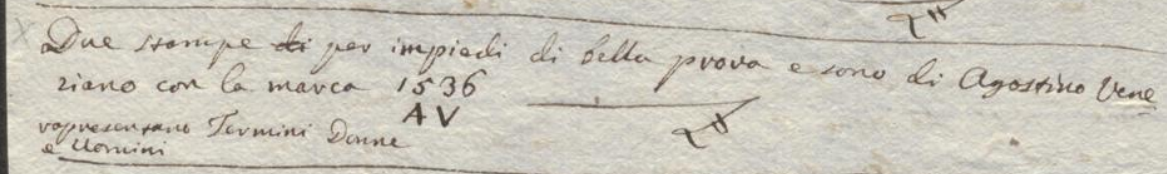 Due stampe di per impiedi di bella prova e sono di Agostino Vene
ziano con la marca 1536
AV
rapresentano Termini Donne
e Uomini